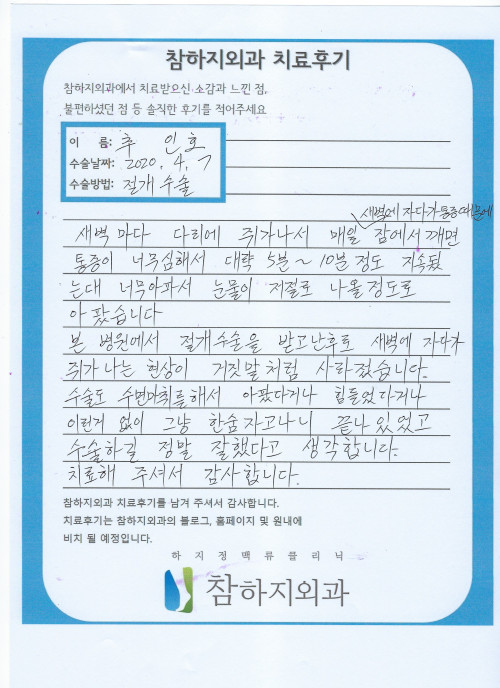 참하지외과 치료후기
참하지외과에서 치료받으신 소감과 느낀 점,
불편하셨던 점 등 솔직한 후기를 적어주세요
이 름: 추 인호
수술날짜: 2020. 4. 7
수술방법: 절개수술
새벽에 자다가 통증때문에
새벽마다 다리에 쥐가나서 매일 잠에서 깨면
통증이 너무심해서 대략 5분~10분정도 지속됬
는대 너무아파서 눈물이 저절로 나올정도로
아팠습니다
본 병원에서 절개수술을 받고난후로 새벽에 자다가
쥐가나는 현상이 거짓말처럼 사라졌습니다.
수술도 수면마취를해서 아팠다거나 힘들었다거나
이런거 없이 그냥 한숨자고나니 끝나있었고
수술하길 정말 잘했다고 생각합니다.
치료해 주셔서 감사합니다.
참하지외과 치료후기를 남겨 주셔서 감사합니다.
치료후기는 참하지외과의 블로그, 홈페이지 및 원내에
비치 될 예정입니다.
하지정맥류클리닉
참하지외과